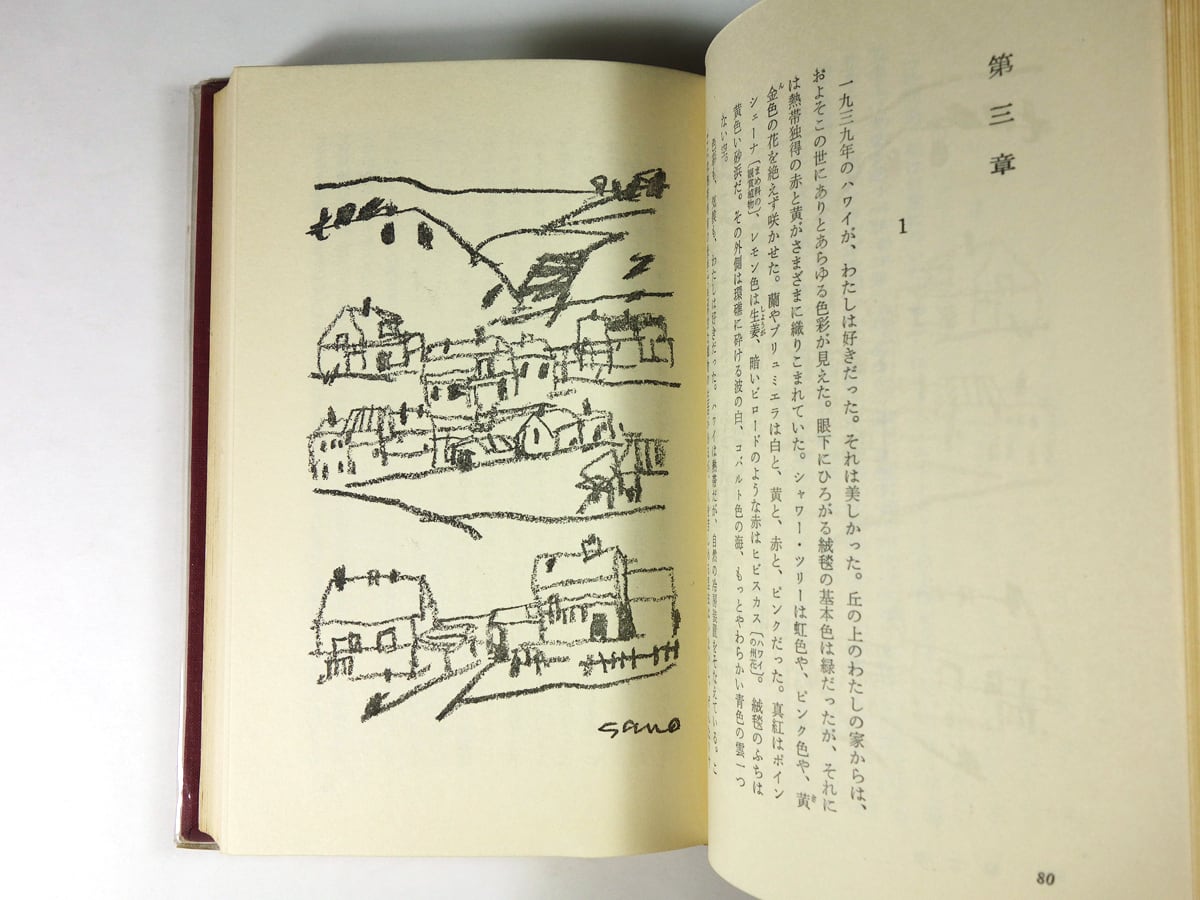 第三章
1
一九三九年のハワイが、わたしは好きだった。それは美しかった。丘の上のわたしの家からは、
およそこの世にありとあらゆる色彩が見えた。眼下にひろがる絨毯の基本色は緑だったが、それに
は熱帯独得の赤と黄がさまざまに織りこまれていた。シャワー・ツリーは虹色や、ピンク色や、黄
金色の花を絶えず咲かせた。蘭やプリュミエラは白と、黄と、赤と、ピンクだった。真紅はポイン
シェーナ〔まめ科の観賞植物〕、レモン色は生姜、暗いビロードのような赤はヒビスカス〔ハワイの州花〕。絨毯のふちは
黄色い砂浜だ。その外側は環礁に砕ける波の白、コバルト色の海、もっとやわらかい青色の雲一つ
ない空。
わたしは好きだった。ハワイは熱帯だが、自然の冷房装置をそなえている。
80
sano